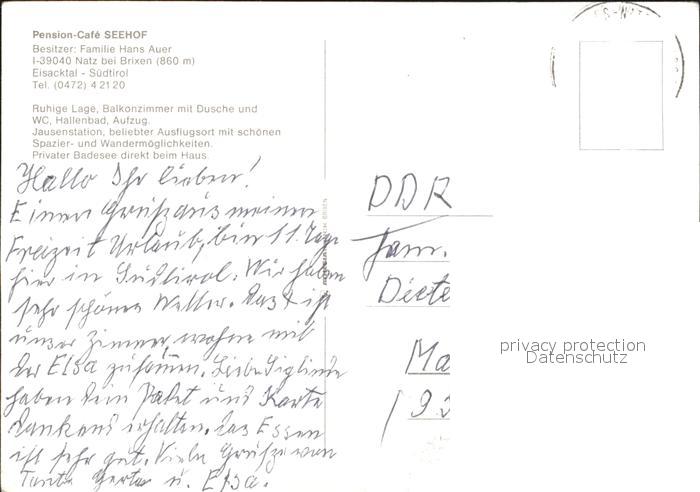 Pension-Café SEEHOF
Besitzer: Familie Hans Auer
I-39040 Natz bei Brixen (860 m)
Eisacktal - Südtirol
Tel. (0472) 4 21 20
Ruhige Lage, Balkonzimmer mit Dusche und
WC, Hallenbad, Aufzug.
Jausenstation, beliebter Ausflugsort mit schönen
Spazier- und Wandermöglichkeiten.
Privater Badesee direkt beim Haus
Hallo Ihr lieben!
Einen Gruß aus meinem
Freizeit Urlaub, bin 11 Tage
hier in Südtirol. Wir haben
sehr schönes Wetter. Das x ist
unser Zimmer, wohne mit
der Elsa zusammen. Liebe Siglinde
haben dein Paket und Karte
dankend erhalten. Das Essen
ist sehr gut. Viele Grüße von
Tante Gerta u. Elsa.
DDR
Fam.
Diete
Ma
privacy protection
Datenschutz